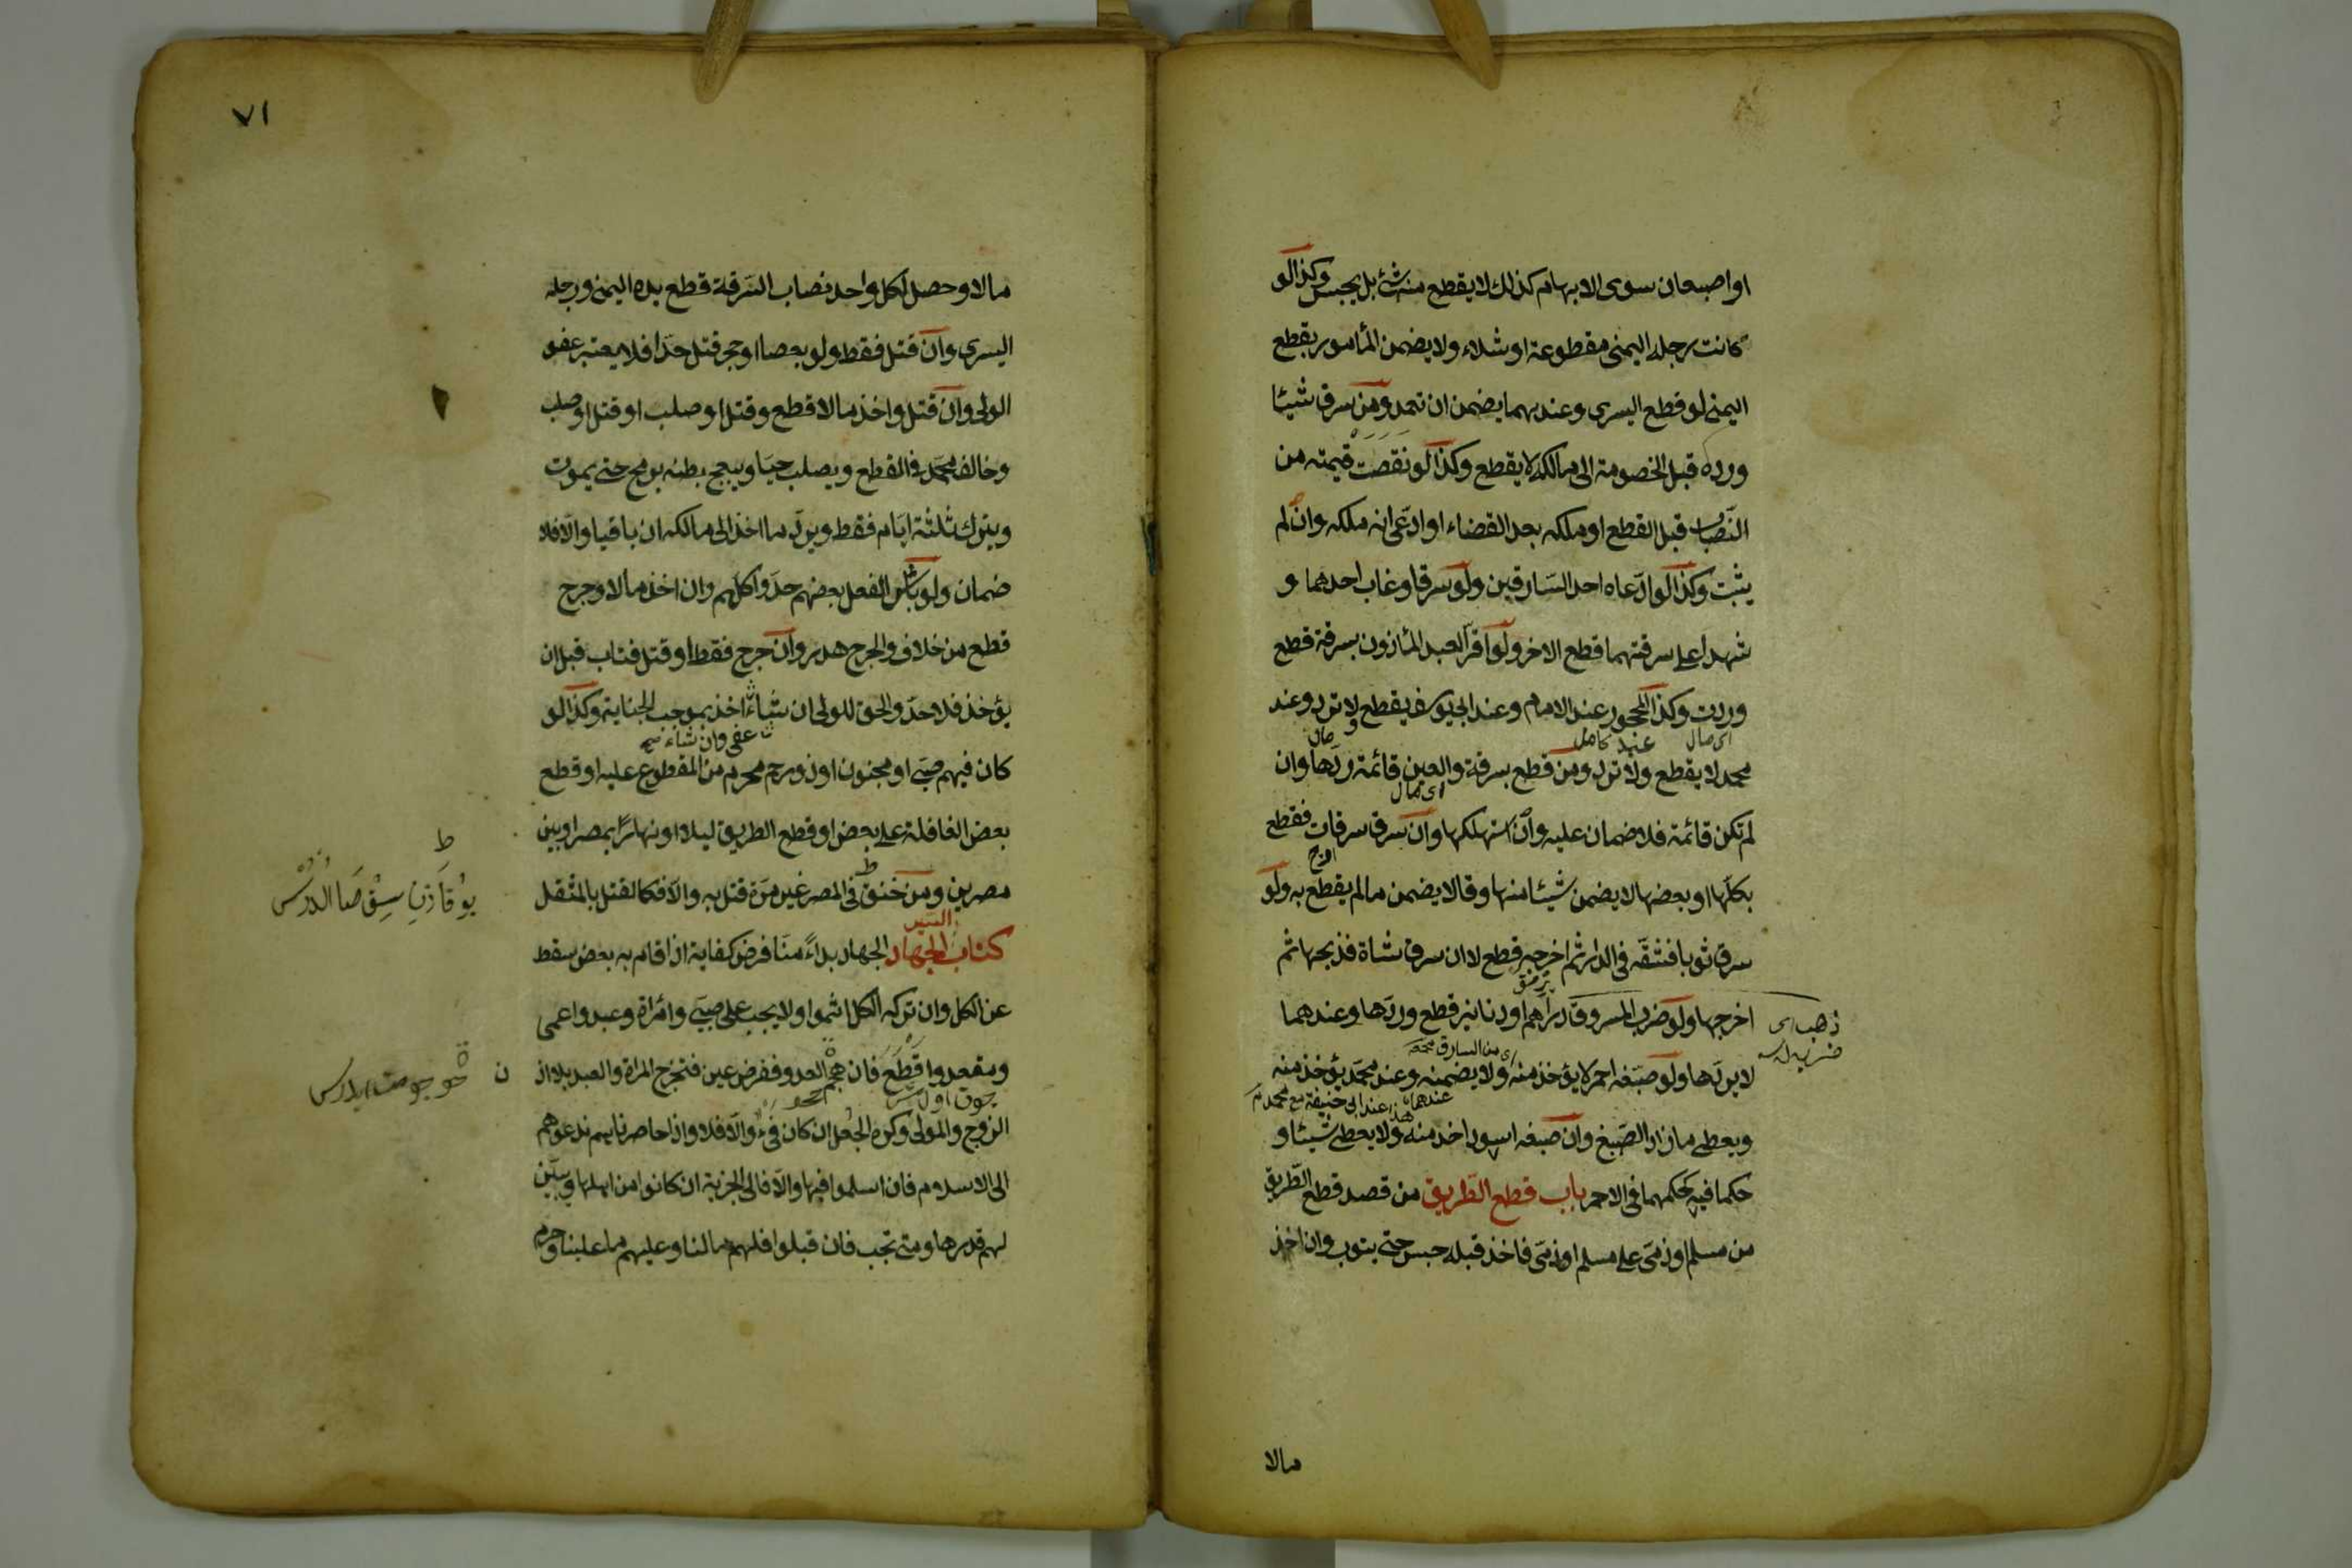 او اصبعان سوى الابهام كذلك لا يقطع منه شئ بل يحبس وكذا لو
كانت رجله اليمنى مقطوعة او شلاء ولا يضمن المأمور بقطع
اليمنى لو قطع اليسرى وعندهما يضمن ان تعمد ومن سرق شيئا
ورده قبل الخصومة الى مالكه لا يقطع وكذا لو نقصت قيمته من
النصاب قبل القطع او ملكه بعد القضاء او ادعى انه ملكه وان لم
يثبت وكذا لو ادعاه احد السارقين ولو سرقا وغاب احدهما و
شهدا على سرقتهما قطع الاخر ولو اقر العبد المأذون بسرقة قطع
وردت وكذا المحجور عند الامام وعند ابى يوسف يقطع ولا ترد وعند
اى مال
محمد لا يقطع ولا ترد ومن قطع بسرقة والعين قائمة ردها وان
اى مال
لم تكن قائمة فلا ضمان عليه وان استهلكها وان سرق سرقات فقطع
بكلها او بعضها لا يضمن شيئا منها وقالا يضمن ما لم يقطع به ولو
سرق ثوبا فشقه فى الدار ثم اخرجه قطع لا ان سرق شاة فذبحها ثم
اخرجها ولو ضرب المسروق دراهم او دنانير قطع وردها وعندهما
ذهب اى
اى من السارق
لا يردها ولو صبغه احمر لا يؤخذ منه ولا يضمنه وعند محمد يؤخذ منه
عندهما هذا عند ابى حنيفة مع محمد
ويعطى ما زاد الصبغ وان صبغه اسود اخذ منه ولا يعطى شيئا و
حكما فيه كحكمهما فى الاحمر باب قطع الطريق من قصد قطع الطريق
من مسلم او ذمى على مسلم او ذمى فاخذ قبله حبس حتى يتوب وان اخذ
مالا
٧١
مالا وحصل لكل واحد نصاب السرقة قطع يده اليمنى ورجله
اليسرى وان قتل فقط ولو بعصا او حجر قتل حدا فلا يعتبر عفو
الولى وان قتل واخذ مالا قطع وقتل او صلب او قتل او صلب
وخالف محمد فى القطع ويصلب حيا ويبعج بطنه برمح حتى يموت
ويترك ثلثة ايام فقط ويرد ما اخذ الى مالكه ان باقيا والا فلا
ضمان ولو باشر الفعل بعضهم حدوا كلهم وان اخذ مالا وجرح
قطع من خلاف والجرح هدر وان جرح فقط او قتل فتاب قبل ان
يؤخذ فلا حد والحق للولى ان شاء اخذ بموجب الجناية وكذا لو
عفى وان شاء صح
كان فيهم صبى او مجنون او ذو رحم محرم من المقطوع عليه او قطع
بعض القافلة على بعض او قطع الطريق ليلا او نهارا بمصر او بين
ط
مصرين ومن خنق فى المصر غير مرة قتل به والا فكالقتل بالمثقل
السير
كتاب الجهاد الجهاد بدأ منا فرض كفاية اذا قام به بعض سقط
عن الكل وان تركه الكل اثموا ولا يجب على صبى وامرأة وعبد واعمى
ومقعد واقطع فان هجم العدو ففرض عين فتخرج المرأة والعبد بلا اذن
الزوج والمولى وكره الجعل ان كان فئ والا فلا واذا حاصرناهم ندعوهم
الى الاسلام فان اسلموا فبها والا فالى الجزية ان كانوا من اهلها وبين
لهم قدرها ومتى تجب فان قبلوا فلهم ما لنا وعليهم ما علينا وحرم